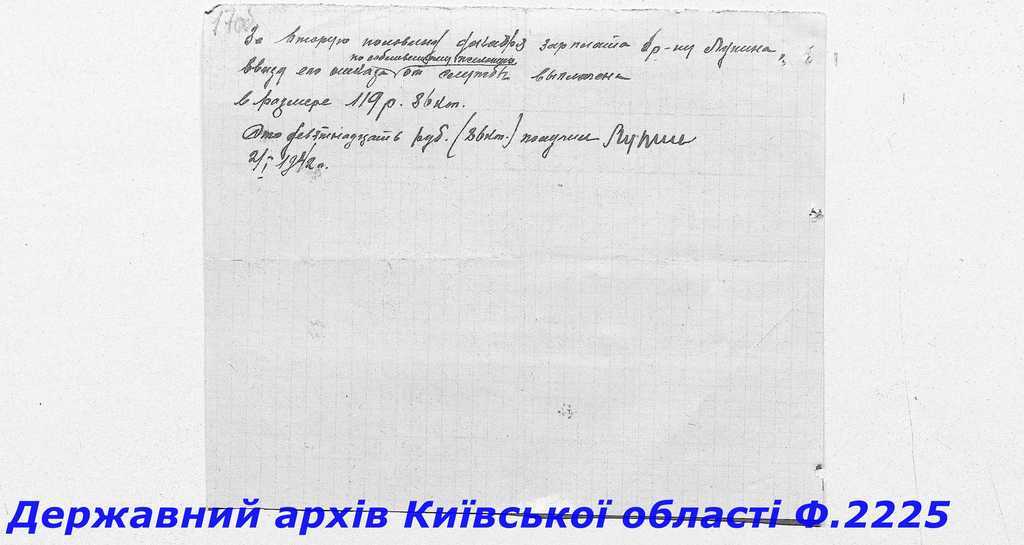 17об
За вторую половину декабря зарплата гр-ну Лупина,
по собственному желанию
ввиду его отказа от службы выплачена
в размере 119 р. 36 коп.
Сто девятнадцать руб. (36 коп.) получил Лупин
2/I 1942 г.
Державний архів Київської області Ф.2225